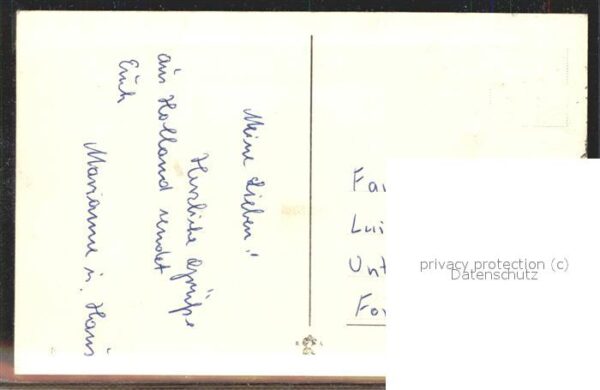 Meine Lieben!
Herzliche Grüße
aus Holland sendet
Euch
Marianne u. Hans
Fa
Lui
Unt
Fo
privacy protection (c)
Datenschutz